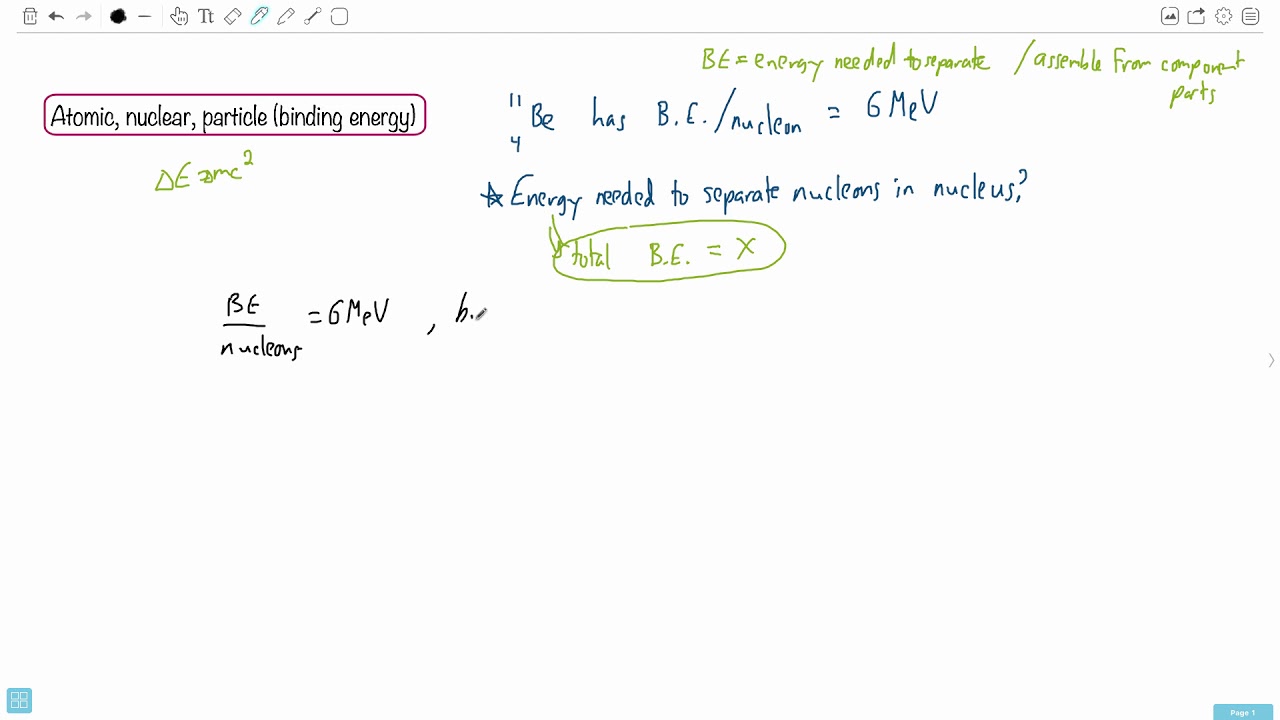 Tt
BE = energy needed to separate / assemble from component parts
Atomic, nuclear, particle (binding energy)
11
4 Be has B.E./nucleon = 6 MeV
ΔE = mc²
☆ Energy needed to separate nucleons in nucleus?
total B.E. = X
BE
nucleons = 6 MeV , b.
Page 1